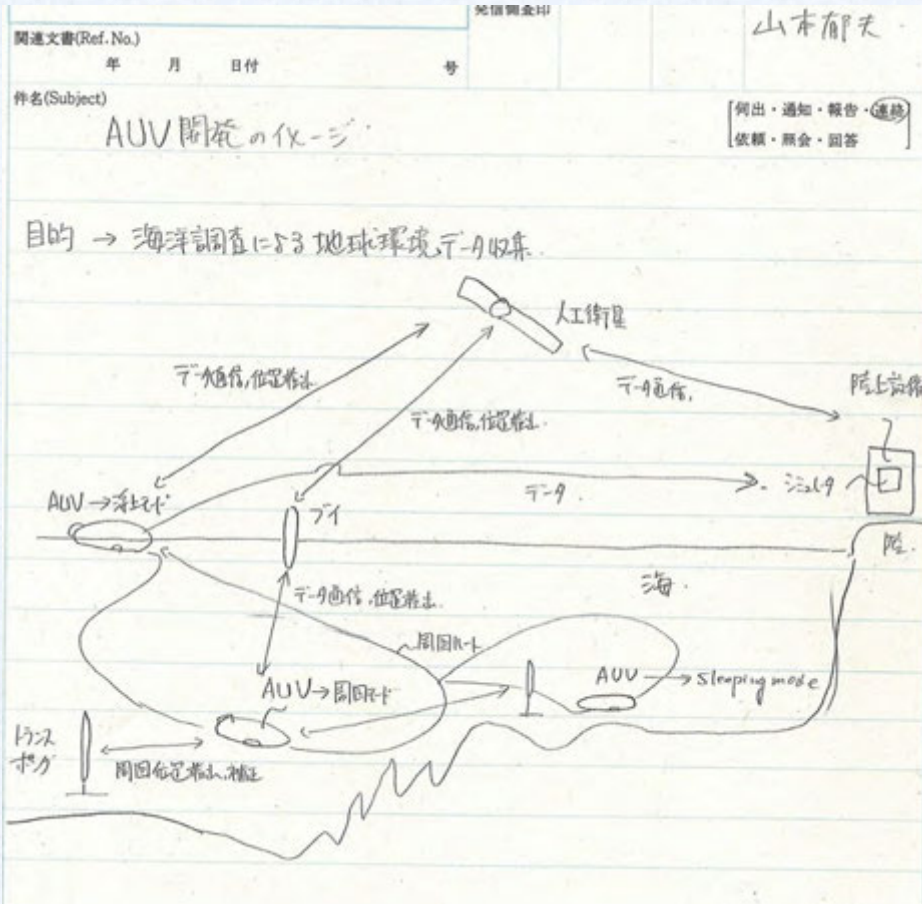 発信備査印
山本郁夫
関連文書(Ref.No.)
年 月 日付 号
件名(Subject)
AUV開発のイメージ
[伺出・通知・報告・連絡
依頼・照会・回答]
目的 → 海洋調査による地球環境データ収集
人工衛星
データ通信,位置検出
データ通信,
陸上設備
データ通信,位置検出.
AUV→浮上モード
ブイ
データ.
シミュレータ
陸.
データ通信,位置検出.
海.
周回ルート
AUV→周回モード
AUV → Sleeping mode
トランス
ポンダ
周回位置検出,補正